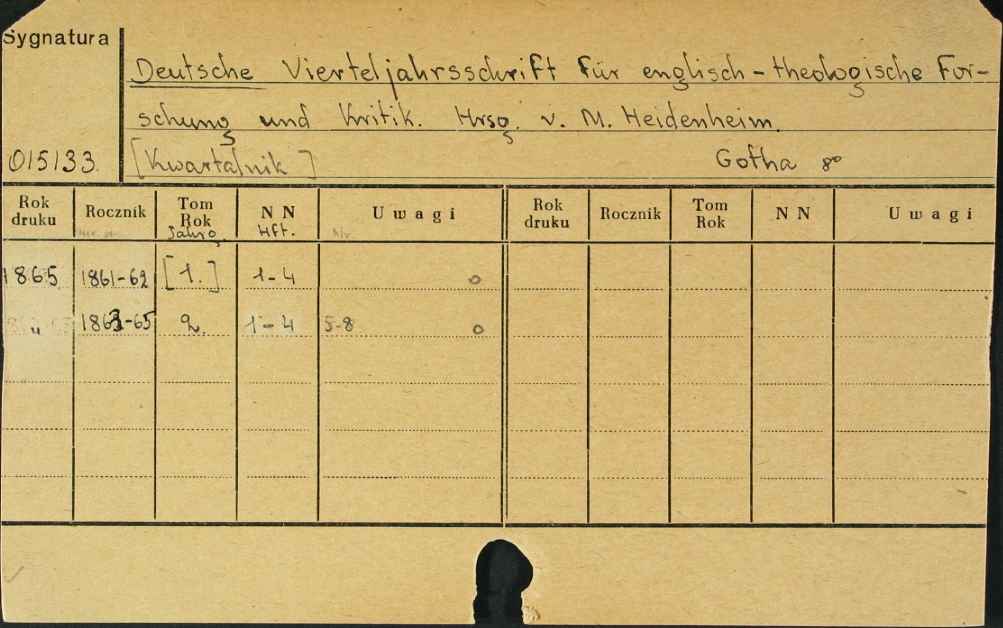 Sygnatura
Deutsche Vierteljahrsschrift für englisch-theologische For-
schung und Kritik. Hrsg. v. M. Heidenheim.
015133. [Kwartalnik] Gotha 8°
Rok druku Rocznik Tom Rok N N Uwagi Rok druku Rocznik Tom Rok N N Uwagi
Jahrg. Hft.
1865. 1861-62 [1.] 1-4 o
" 1863-65 2. 1-4 5-8 o